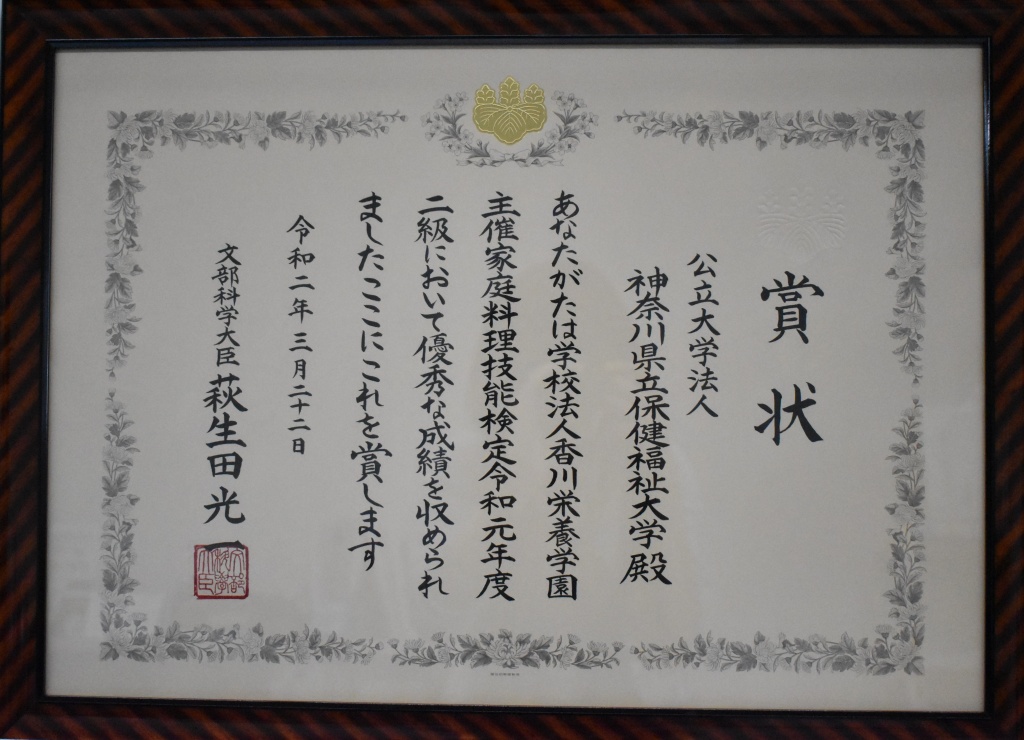 賞状
公立大学法人
神奈川県立保健福祉大学殿
あなたがたは学校法人香川栄養学園
主催家庭料理技能検定令和元年度
二級において優秀な成績を収められ
ましたここにこれを賞します
令和二年三月二十二日
文部科学大臣 萩生田光一
文部科学大臣